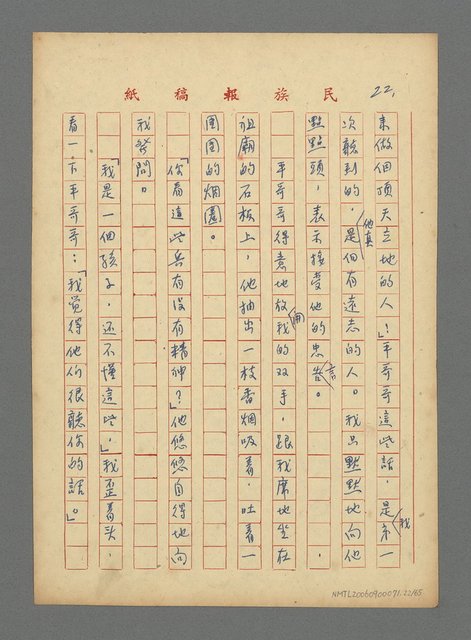 民族報稿紙
22.
來做個頂天立地的人！」平哥哥這些話，是我第一
次聽到的，他真是個有遠志的人。我只點點地向他
點點頭，表示接受他的忠言。
平哥哥得意地放開我的双手，跟我席地坐在
祖廟的石板上，他抽出一枝香烟吸着，吐着一
團團的烟圈。
「你看這些兵有没有精神？」他悠悠自得地向
我發問。
「我是一個孩子，还不懂這些，」我歪着头，
看一下平哥哥：「我覚得他们很聽你的話。」
NMTL20060900071.22/65